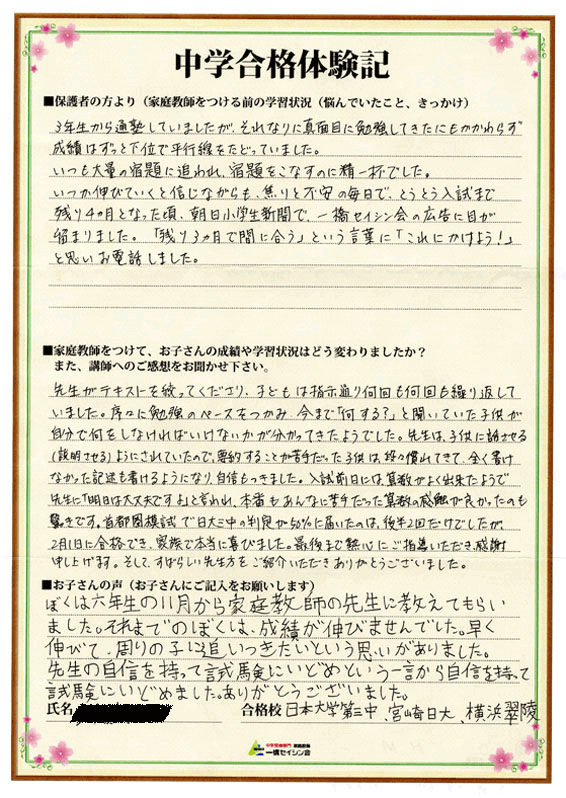 中学合格体験記
■保護者の方より（家庭教師をつける前の学習状況（悩んでいたこと、きっかけ）
3年生から通塾していましたが、それなりに真面目に勉強してきたにもかかわらず
成績はずっと下位で平行線をたどっていました。
いつも大量の宿題に追われ、宿題をこなすのに精一杯でした。
いつか伸びていくと信じながらも、焦りと不安の毎日で、とうとう入試まで
残り4ヵ月となった頃、朝日小学生新聞で、一橋セイシン会の広告に目が
留まりました。「残り3ヵ月で間に合う」という言葉に「これにかけよう！」
と思いお電話しました。
■家庭教師をつけて、お子さんの成績や学習状況はどう変わりましたか？
また、講師へのご感想をお聞かせ下さい。
先生がテキストを絞ってくださり、子どもは指示通り何回も何回も繰り返して
いました。序々に勉強のペースをつかみ、今まで「何する？」と聞いていた子供が
自分で何をしなければいけないかが分かってきたようでした。先生は、子供に話させる
(説明させる)ようにされていたので、要約することが苦手だった子供は、段々慣れてきて、全く書け
なかった記述も書けるようになり、自信もつきました。入試前日には、算数がよく出来たようで
先生に「明日は大丈夫ですよ」と言われ、本番もあんなに苦手だった算数の感触が良かったのも
驚きです。首都圏模試で日大三中の判定が50%に届いたのは、後半2回だけでしたが、
2月1日に合格でき、家族で本当に喜びました。最後まで熱心にご指導いただき、感謝
申し上げます。そして、すばらしい先生方をご紹介いただきありがとうございました。
■お子さんの声（お子さんにご記入をお願いします）
ぼくは六年生の11月から家庭教師の先生に教えてもらい
ました。それまでのぼくは、成績が伸びませんでした。早く
伸びて、周りの子に追いつきたいという思いがありました。
先生の自信を持って試験にいどめという一言から自信を持って
試験にいどめました。ありがとうございました。
氏名 合格校 日本大学第三中、宮崎日大、横浜翠陵
一橋セイシン会